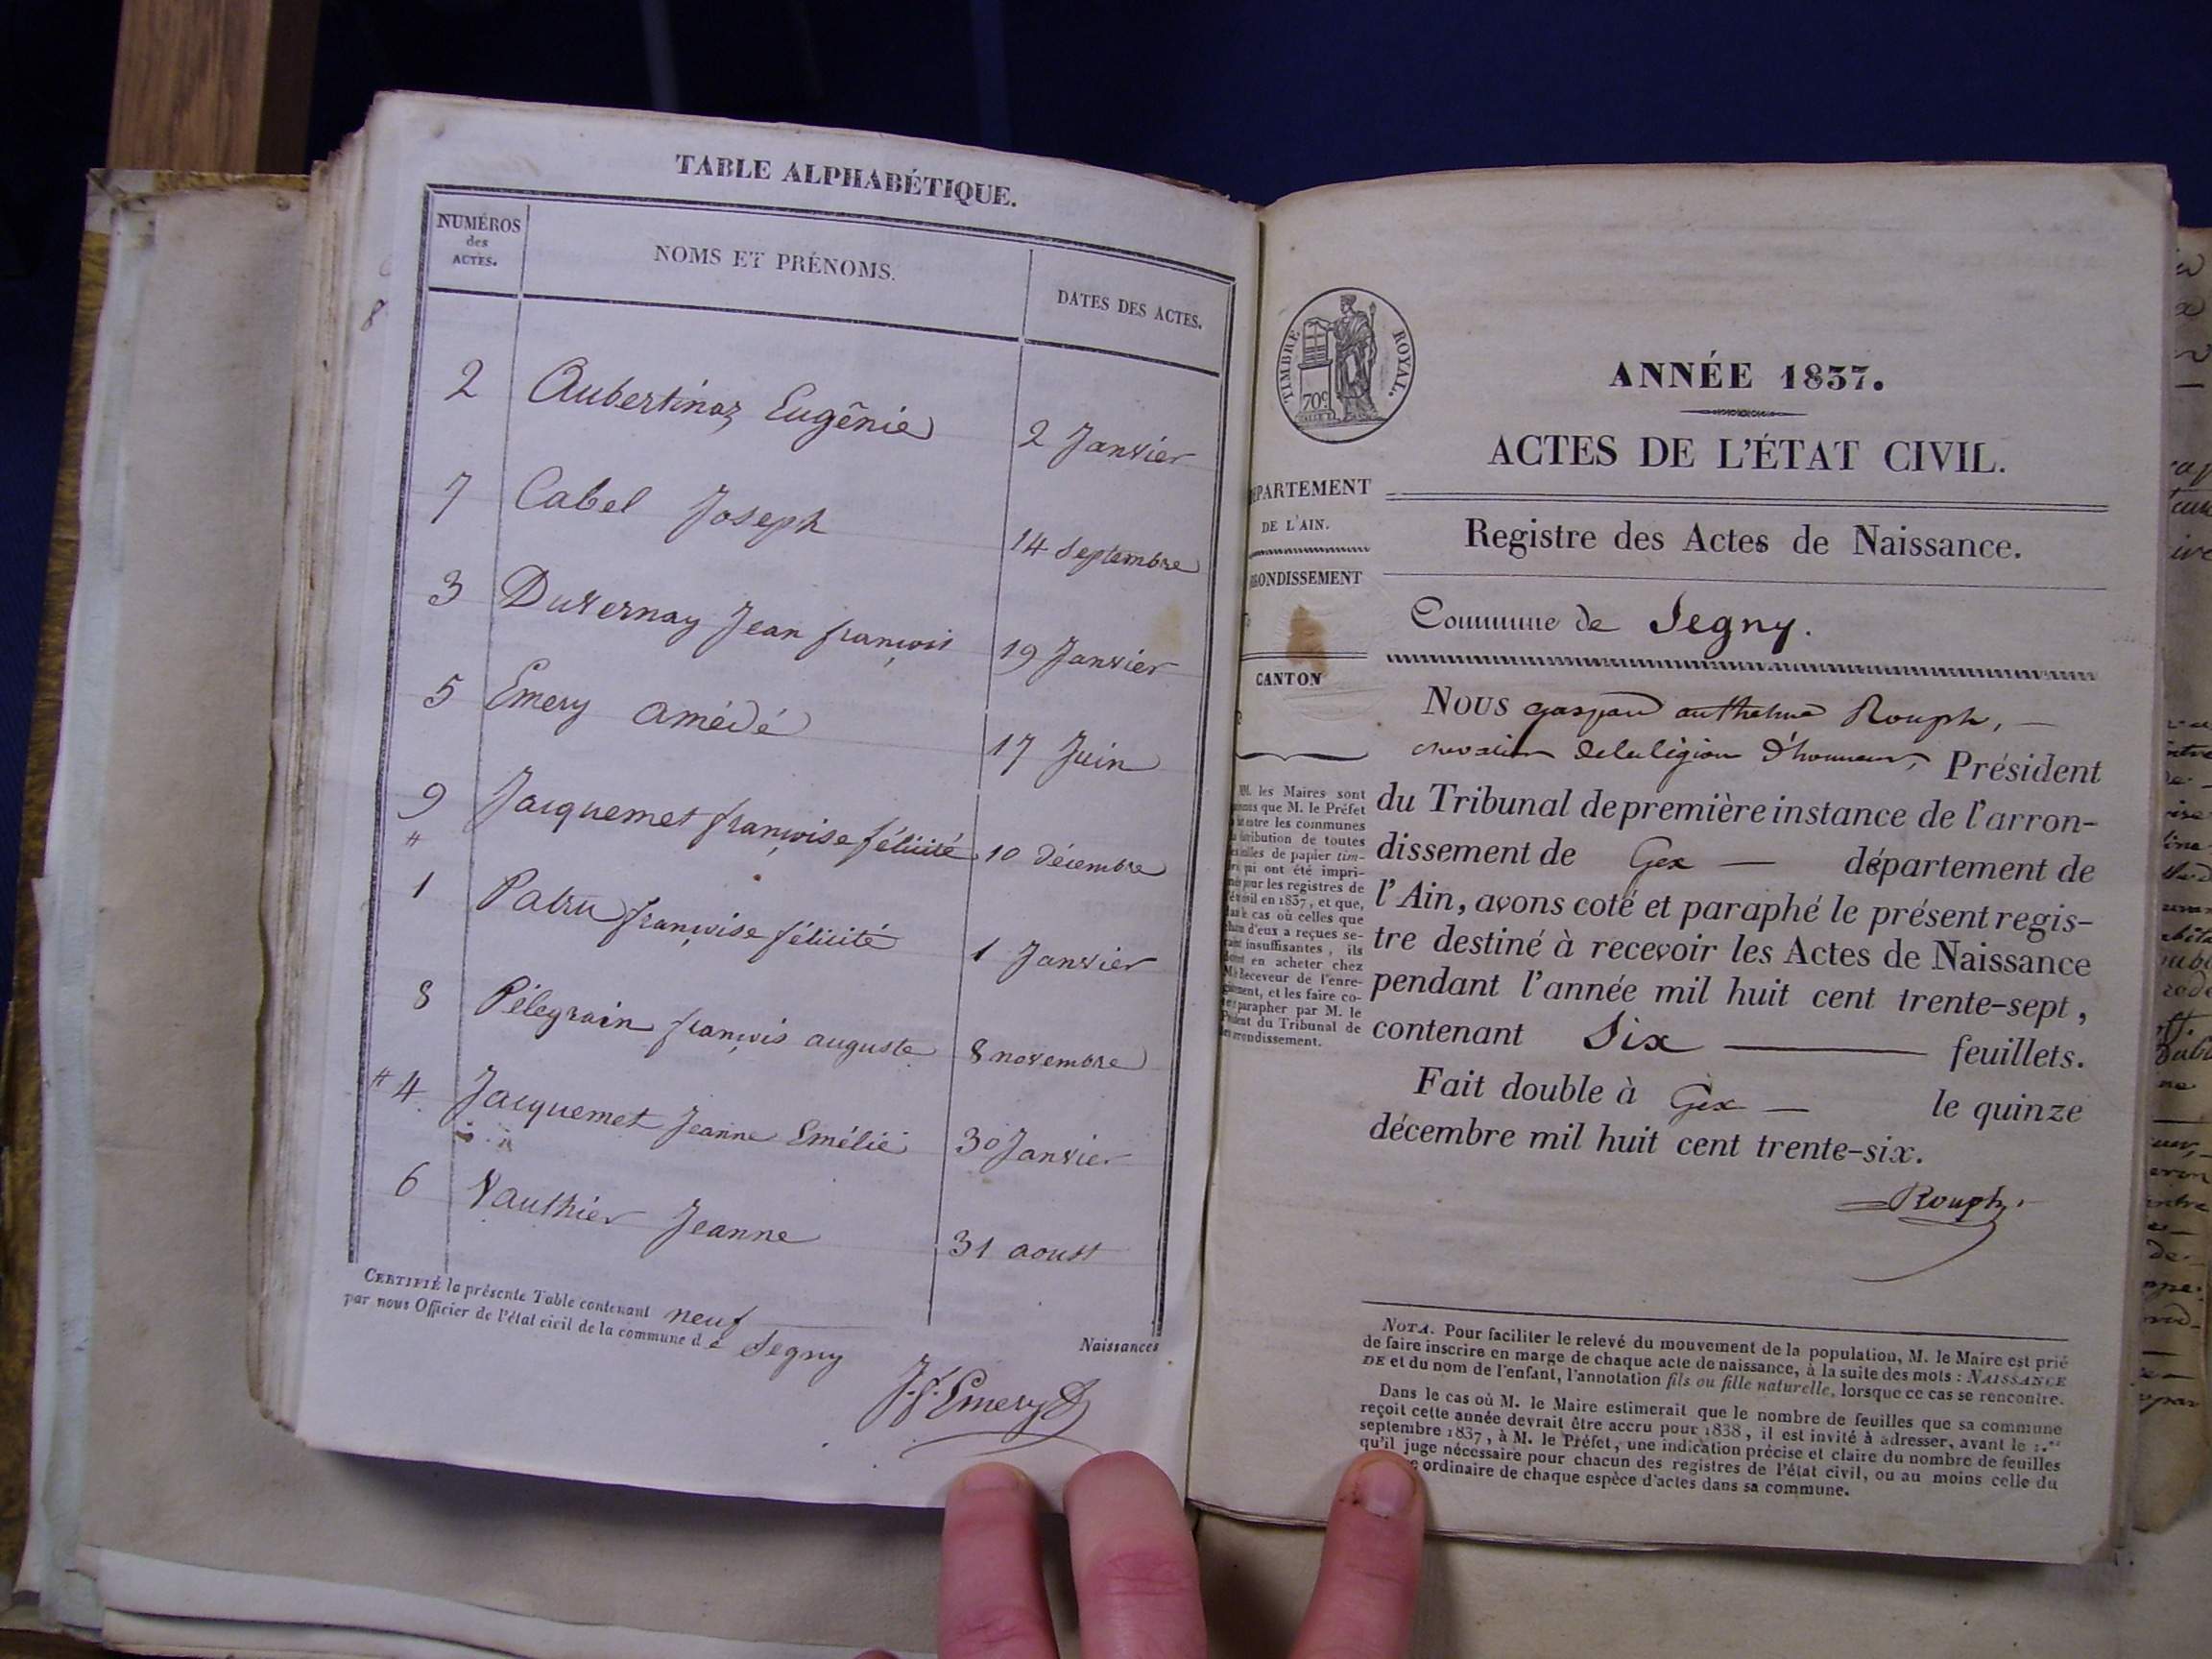 TABLE ALPHABÉTIQUE.
NUMÉROS
des
ACTES.
NOMS ET PRÉNOMS.
DATES DES ACTES.
8
2 Aubertinaz Eugênie 2 Janvier
7 Cabel Joseph 14 Septembre
3 Duvernay Jean françois 19 Janvier
5 Emery amédé 17 Juin
9 Jacquemet françoise félicité 10 décembre
#
1 Patru françoise félicité 1 Janvier
8 Pélegrain françois auguste 8 novembre
# 4. Jacquemet Jeanne Emélie 30 Janvier
6 Vauthier Jeanne 31 aoust
CERTIFIÉ la présente Table contenant neuf Naissances
par nous Officier de l'état civil de la commune de Segny
J. f. Emery
TIMBRE ROYAL.
70c
ANNÉE 1837.
ACTES DE L'ÉTAT CIVIL.
EPARTEMENT
DE L'AIN.
Registre des Actes de Naissance.
ONDISSEMENT
Commune de Segny.
CANTON
Nous gaspard anthelme Rouph,
chevalier de la légion d'honneur, Président
du Tribunal de première instance de l'arron-
dissement de Gex — département de
l'Ain, avons coté et paraphé le présent regis-
tre destiné à recevoir les Actes de Naissance
pendant l'année mil huit cent trente-sept,
contenant Six — feuillets.
Fait double à Gex — le quinze
décembre mil huit cent trente-six.
Rouph.
MM. les Maires sont
que M. le Préfet
entre les communes
tribution de toutes
feuilles de papier tim-
qui ont été impri-
pour les registres de
civil en 1837, et que,
le cas où celles que
d'eux a reçues se-
insuffisantes, ils
en acheter chez
Receveur de l'enre-
et les faire co-
parapher par M. le
du Tribunal de
arrondissement.
NOTA. Pour faciliter le relevé du mouvement de la population, M. le Maire est prié
de faire inscrire en marge de chaque acte de naissance, à la suite des mots : NAISSANCE
DE et du nom de l'enfant, l'annotation fils ou fille naturelle, lorsque ce cas se rencontre.
Dans le cas où M. le Maire estimerait que le nombre de feuilles que sa commune
reçoit cette année devrait être accru pour 1838, il est invité à adresser, avant le 1.er
septembre 1837, à M. le Préfet, une indication précise et claire du nombre de feuilles
qu'il juge nécessaire pour chacun des registres de l'état civil, ou au moins celle du
ordinaire de chaque espèce d'actes dans sa commune.